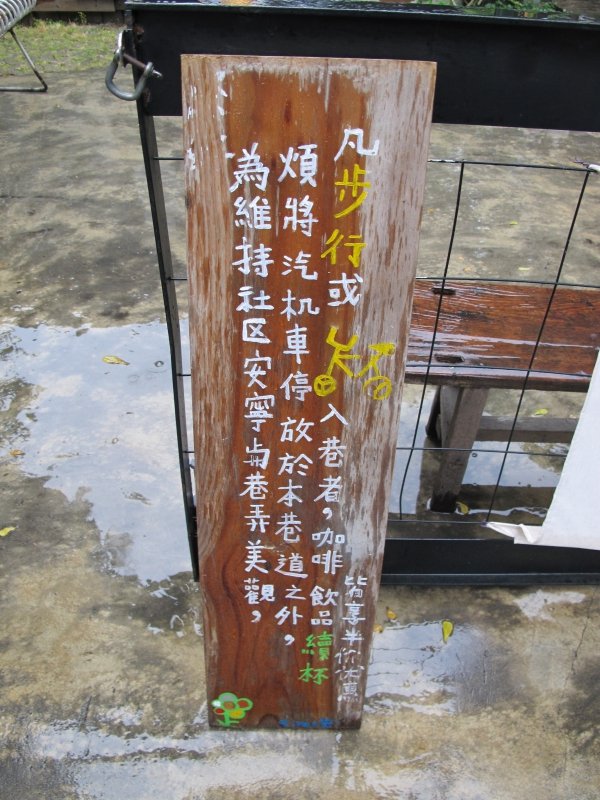 為維持社区安寧与巷弄美觀，
煩將汽机車停放於本巷道之外，
凡步行或入巷者，咖啡飲品續杯
皆享半价优惠